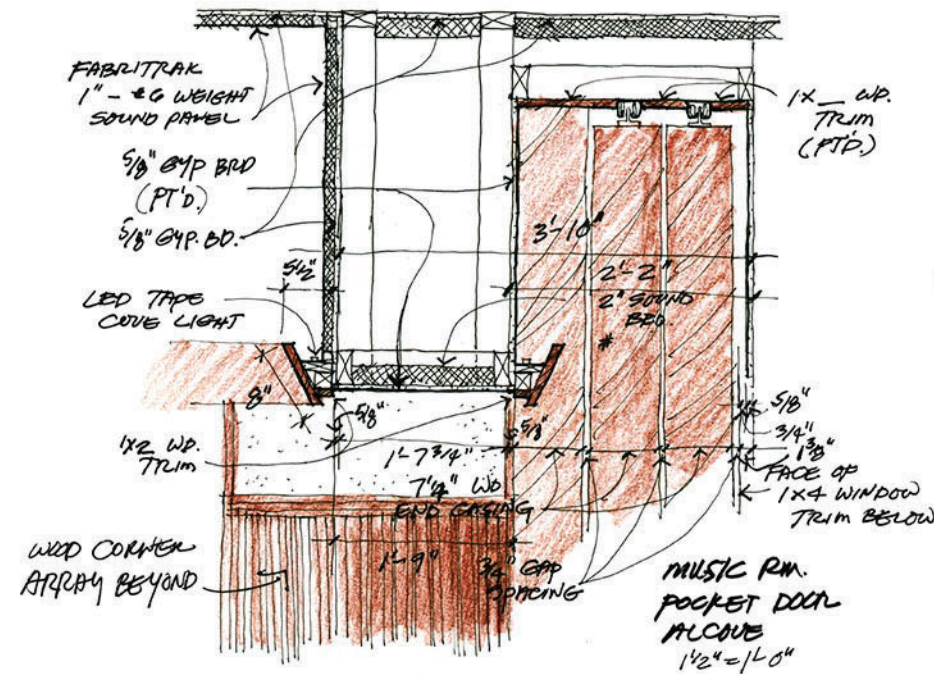 FABRITRAK
1" - #6 WEIGHT
SOUND PANEL
5/8" GYP BRD
(PT'D.)
5/8" GYP. BD.
5 1/2"
LED TAPE
COVE LIGHT
8"
1X2 WD.
TRIM
WOOD CORNER
ARRAY BEYOND
1X__ WD.
TRIM
(PTD.)
3'-10"
2'-2"
2" SOUND
BRD.
#
5/8"
5/8"
1'-7 3/4"
7 1/4" WD
END CASING
1'-9"
3/4" GAP
SPACING
5/8"
3/4"
1 3/8"
FACE OF
1X4 WINDOW
TRIM BELOW
MUSIC RM.
POCKET DOOR
ALCOVE
1 1/2" = 1'-0"